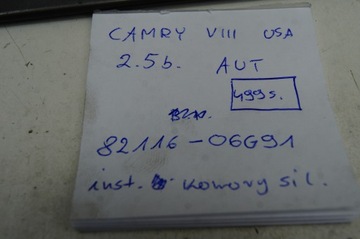 CAMRY VIII USA
2.5b. AUT
499s.
82116-06G91
inst. komory sil.